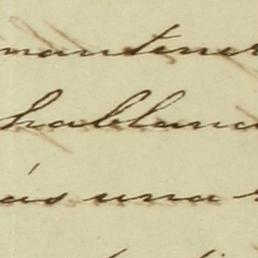 mantener
habland
ás una